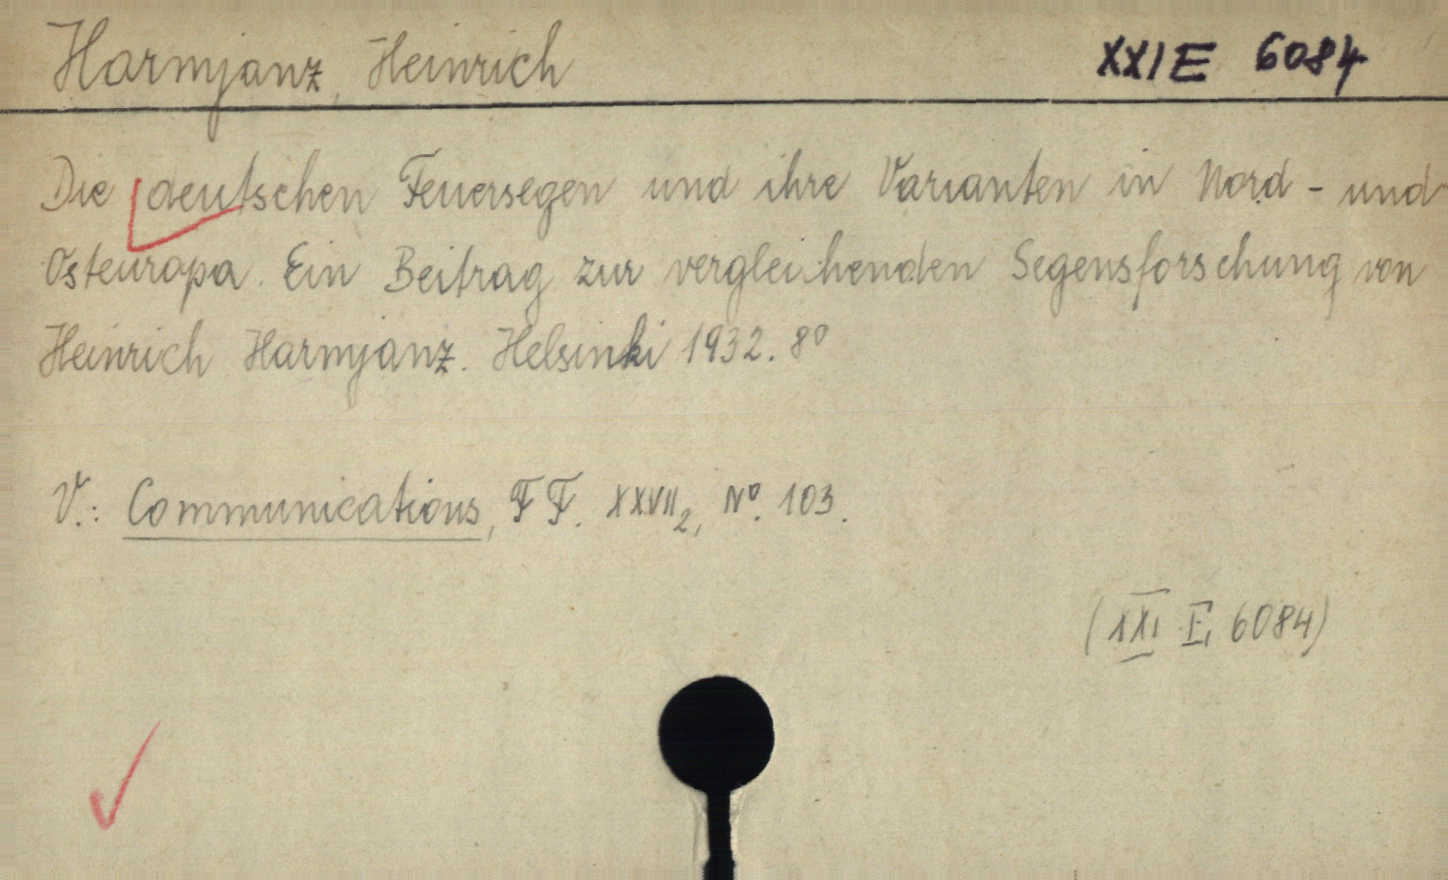 Harmjanz, Heinrich XXI E 6084
Die deutschen Feuersegen und ihre Varianten in Nord - und
Osteuropa. Ein Beitrag zur vergleichenden Segensforschung von
Heinrich Harmjanz. Helsinki 1932. 8°
V.: Communications, FF. XXVII2, No. 103.
(XXI E, 6084)